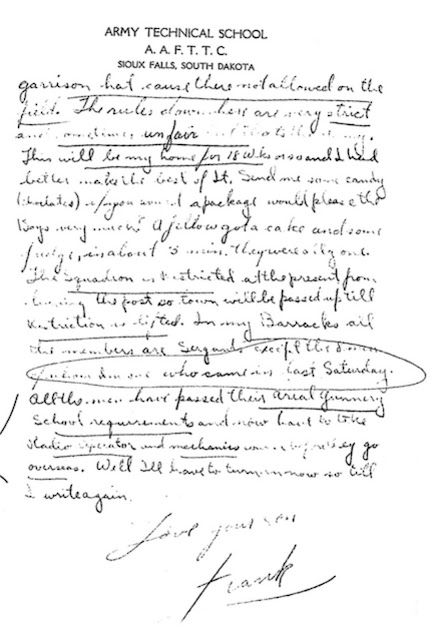 ARMY TECHNICAL SCHOOL
A. A. F. T. T. C.
SIOUX FALLS, SOUTH DAKOTA
garrison hat cause there not allowed on the
field. The rules down here are very strict
and sometimes unfair but thats the army.
This will be my home for 18 Wks or so and I had
better make the best of It. Send me some candy
(choclates) if you would a package would please the
Boys very much. A fellow got a cake and some
fudge, in about 5 min. they were all gone.
The Squadron is restricted at the present from
leaving the post so town will be passed up till
restriction is lifted. In my Barracks all
the members are Sergants except the
of whom Im one who came in last Saturday.
All the men have passed their Arial Gunnery
School requirements and now have to take
Radio Operator and mechanics they go
overseas. Well Ill have to turn in now so till
I write again.
Love your son
Frank